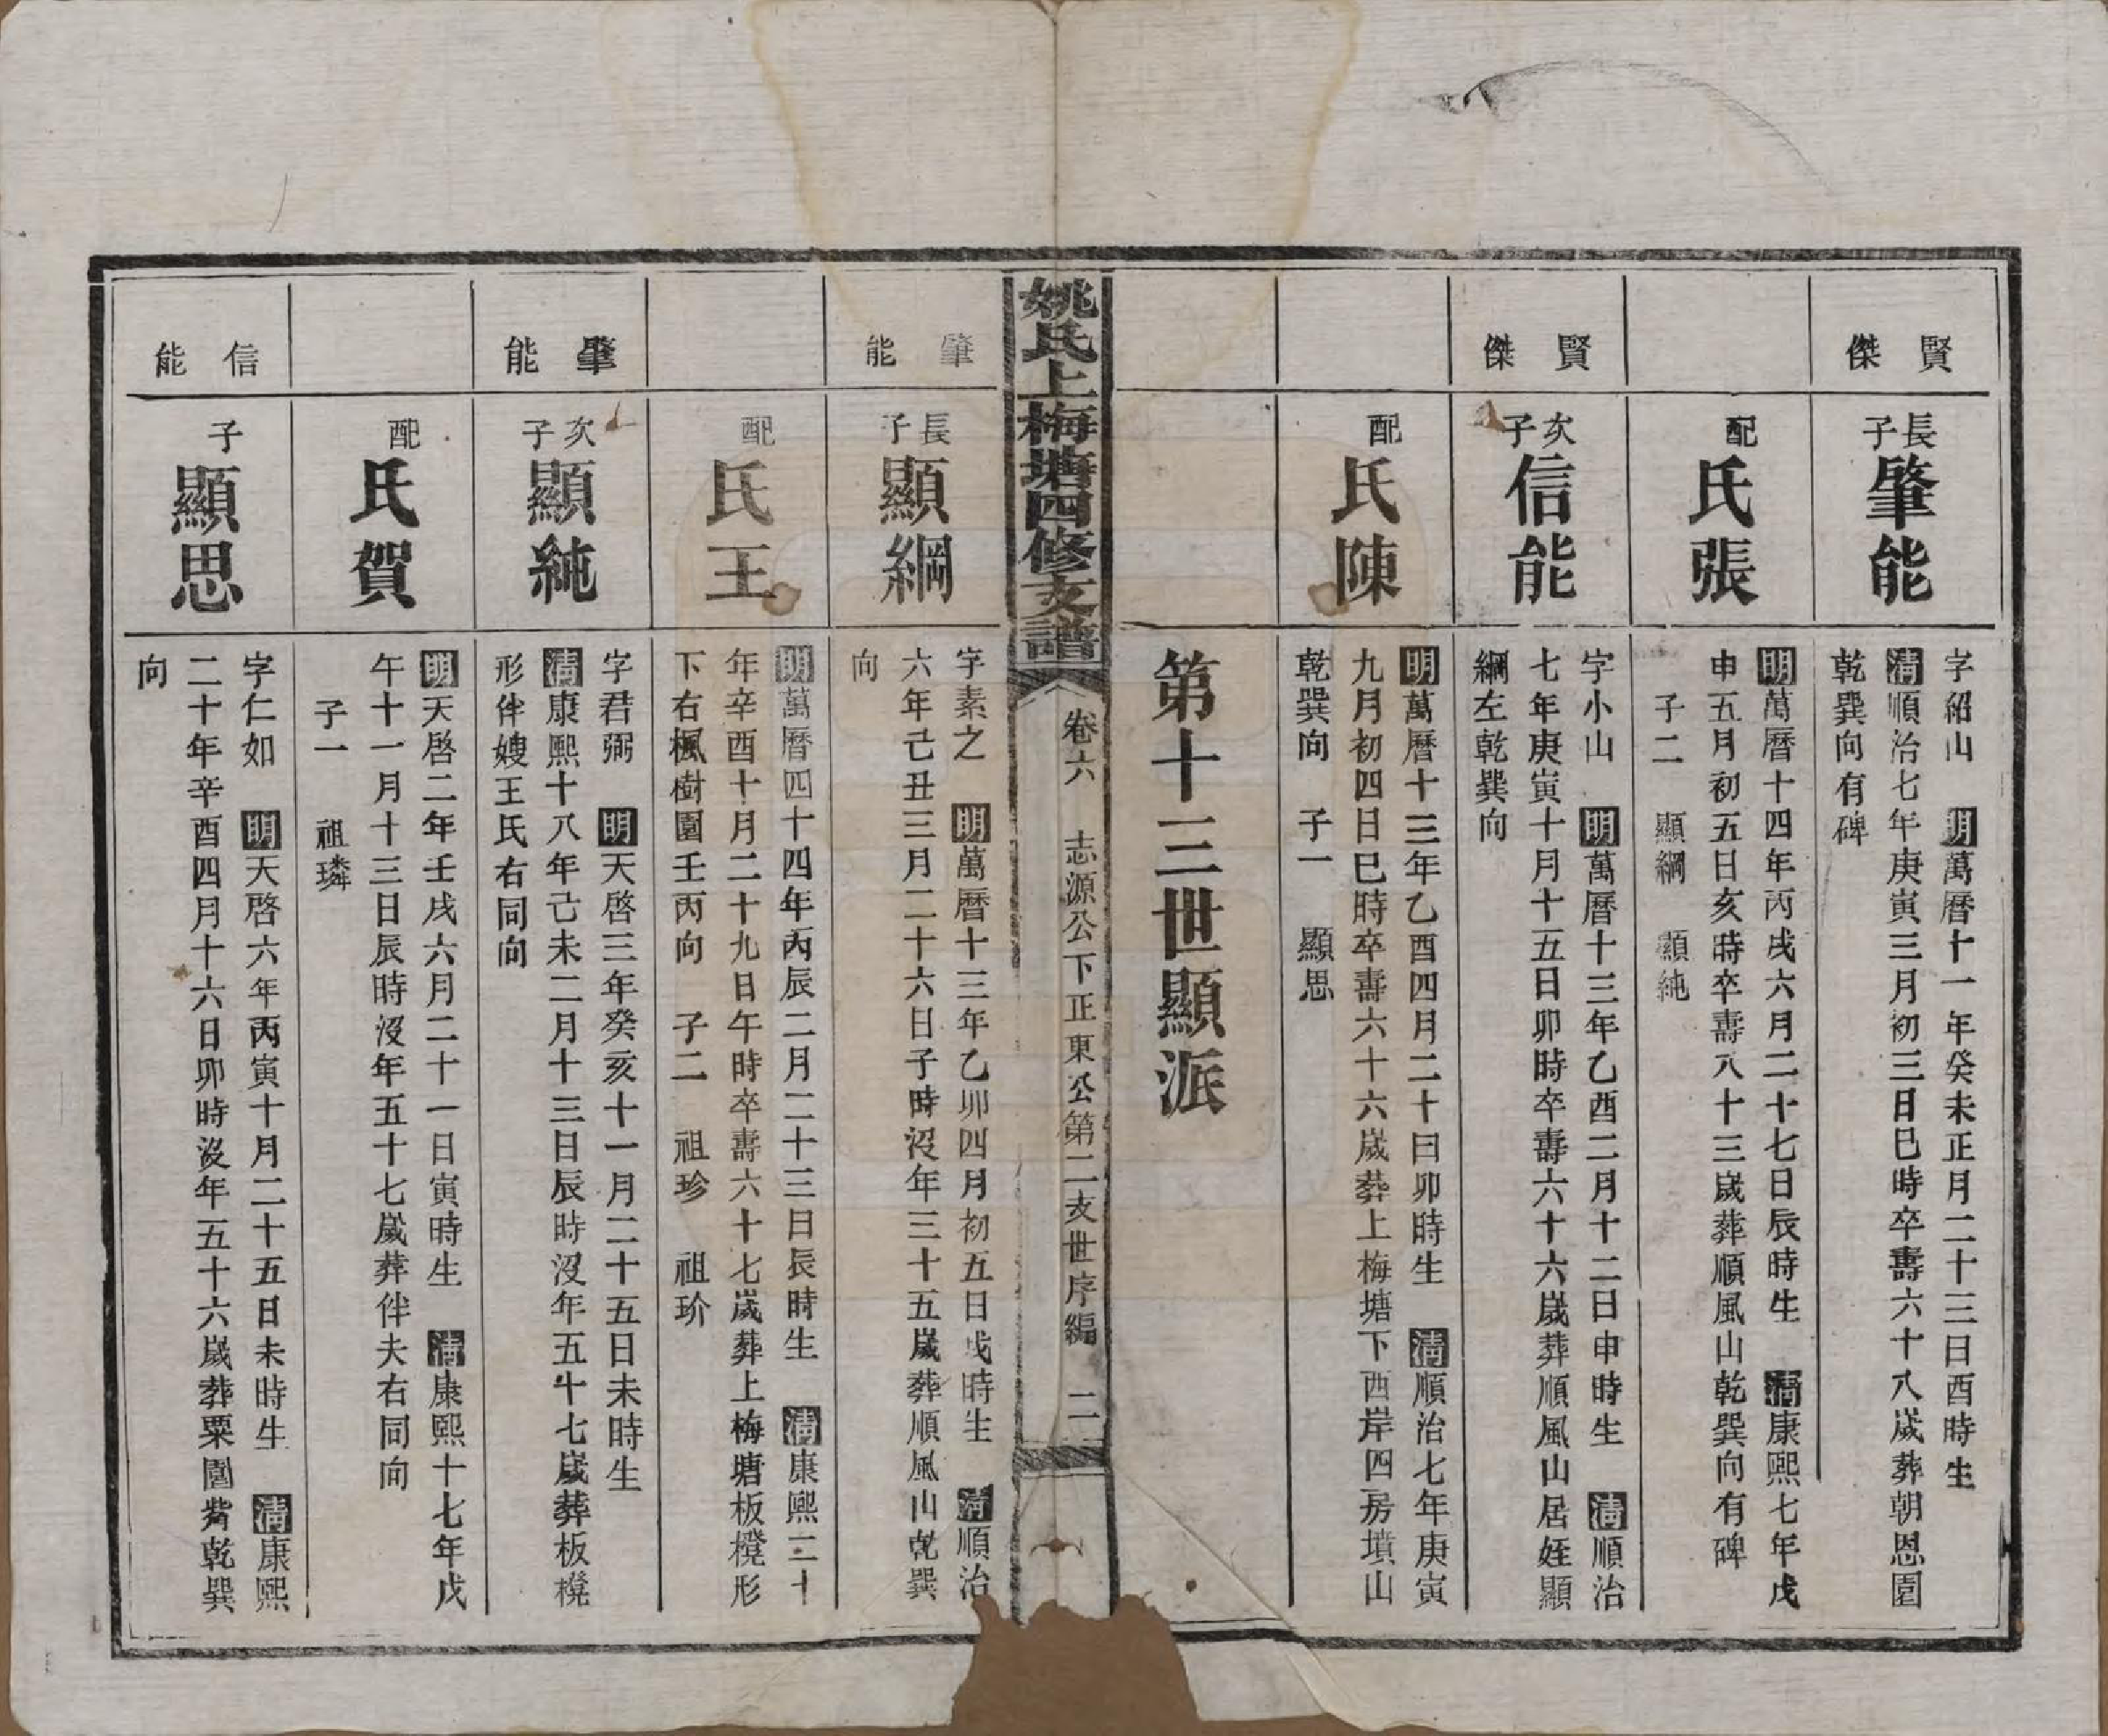 賢傑
長子肇能
字紹山　明萬曆十一年癸未正月二十三日酉時生
清順治七年庚寅三月初三日巳時卒壽六十八歲葬朝恩園
乾巽向有碑
配氏張
明萬曆十四年丙戌六月二十七日辰時生　清康熙七年戊
申五月初五日亥時卒壽八十三歲葬順風山乾巽向有碑
子二　顯綱　顯純
賢傑
次子信能
字小山　明萬曆十三年乙酉二月十二日申時生　清順治
七年庚寅十月十五日卯時卒壽六十六歲葬順風山居姪顯
綱左乾巽向
配氏陳
明萬曆十三年乙酉四月二十日卯時生　清順治七年庚寅
九月初四日巳時卒壽六十六歲葬上梅塘下西岸四房墳山
乾巽向　子一　顯思
第十三世顯派
姚氏上梅塘四修支譜
卷六　志源公下正東公第二支世序編　二
肇能
長子顯綱
字素之　明萬曆十三年乙卯四月初五日戌時生　清順治
六年己丑三月二十六日子時沒年三十五歲葬順風山乾巽
向
配氏王
明萬曆四十四年丙辰二月二十三日辰時生　清康熙二十
年辛酉十月二十九日午時卒壽六十七歲葬上梅塘板櫈形
下右楓樹園壬丙向　子二　祖珍　祖玠
肇能
次子顯純
字君弼　明天啓三年癸亥十一月二十五日未時生
清康熙十八年己未二月十三日辰時沒年五十七歲葬板櫈
形伴嫂王氏右同向
配氏賀
明天啓二年壬戌六月二十一日寅時生　清康熙十七年戊
午十一月十三日辰時沒年五十七歲葬伴夫右同向
子一　祖璘
信能
子顯思
字仁如　明天啓六年丙寅十月二十五日未時生　清康熙
二十年辛酉四月十六日卯時沒年五十六歲葬粟園觜乾巽
向